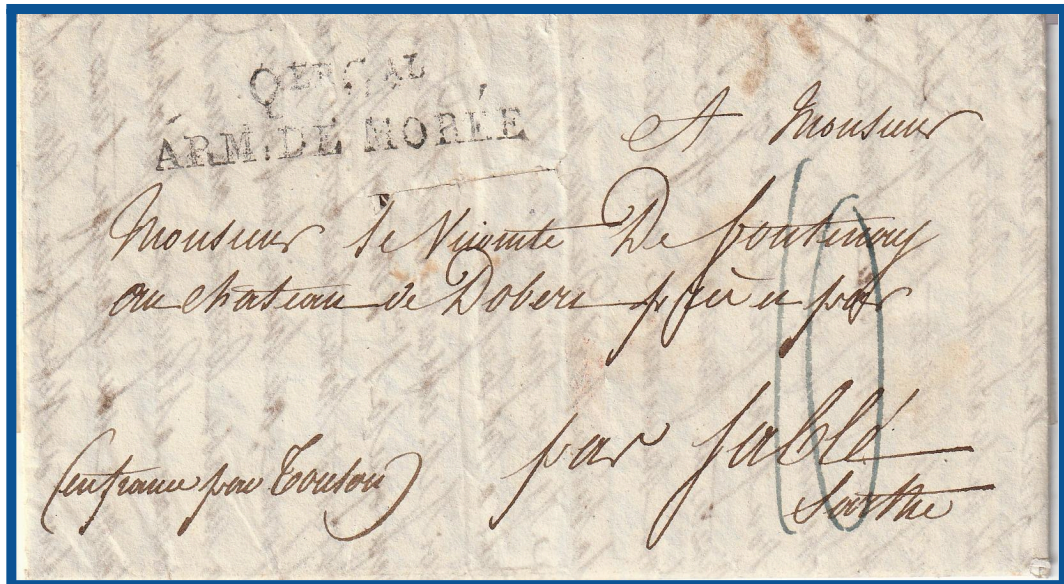 Qer Gal
ARM. DE MORÉE
A Monsieur
Monsieur le Vicomte De fontenay
au chateau de Dobert près et par
par Sablé
Sarthe
(en france par Toulon)
10